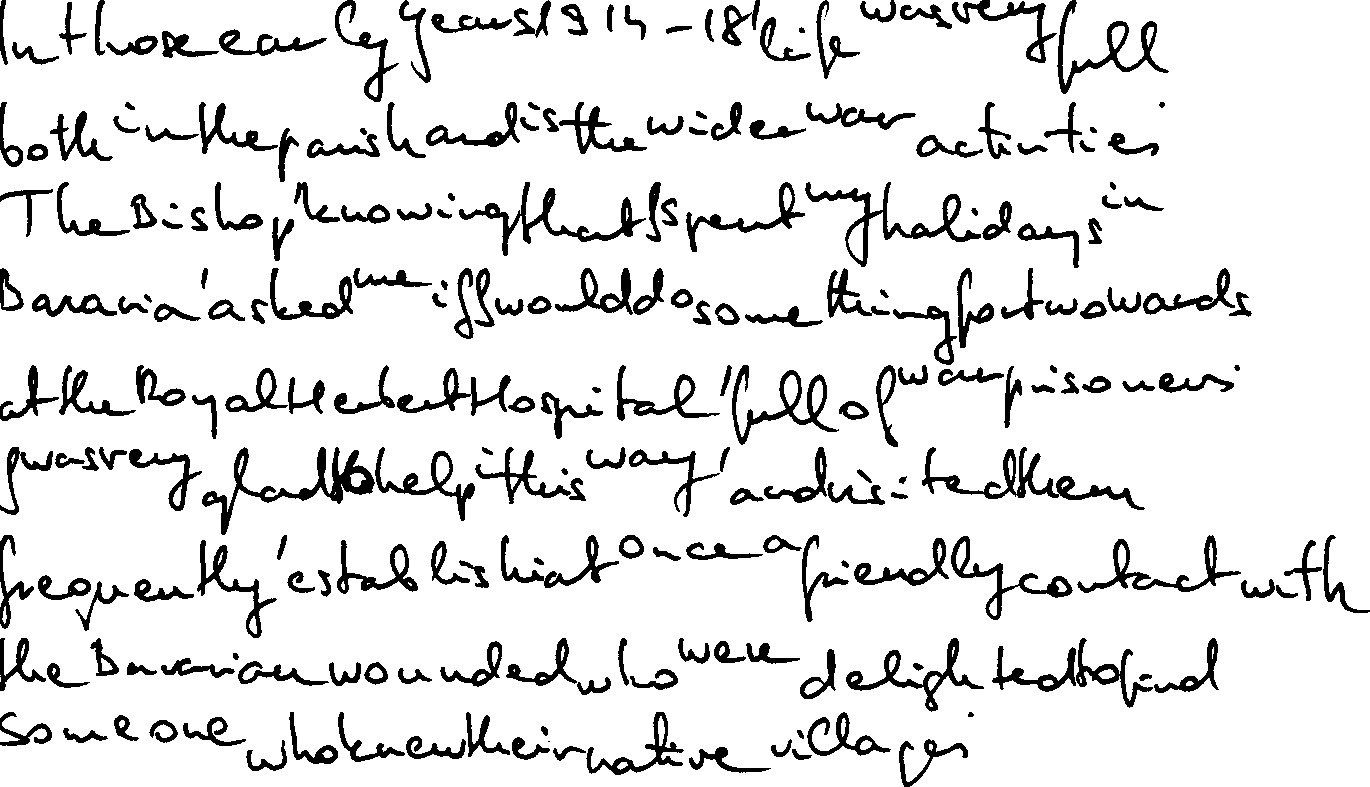 In those early years 1914-18, life was very full
both in the parish and is the wider war activities
The Bishop, knowing that I spent my halidays in
Bavaria, asked me if I would do something for two wards
at the Royal Herbert Hospital, full of war prisoners
I was very glad to help i this way, and visited them
frequently, establishiat once a friendly contact with
the Bavarian wounded, who were delighted to find
someone who knew their native villages